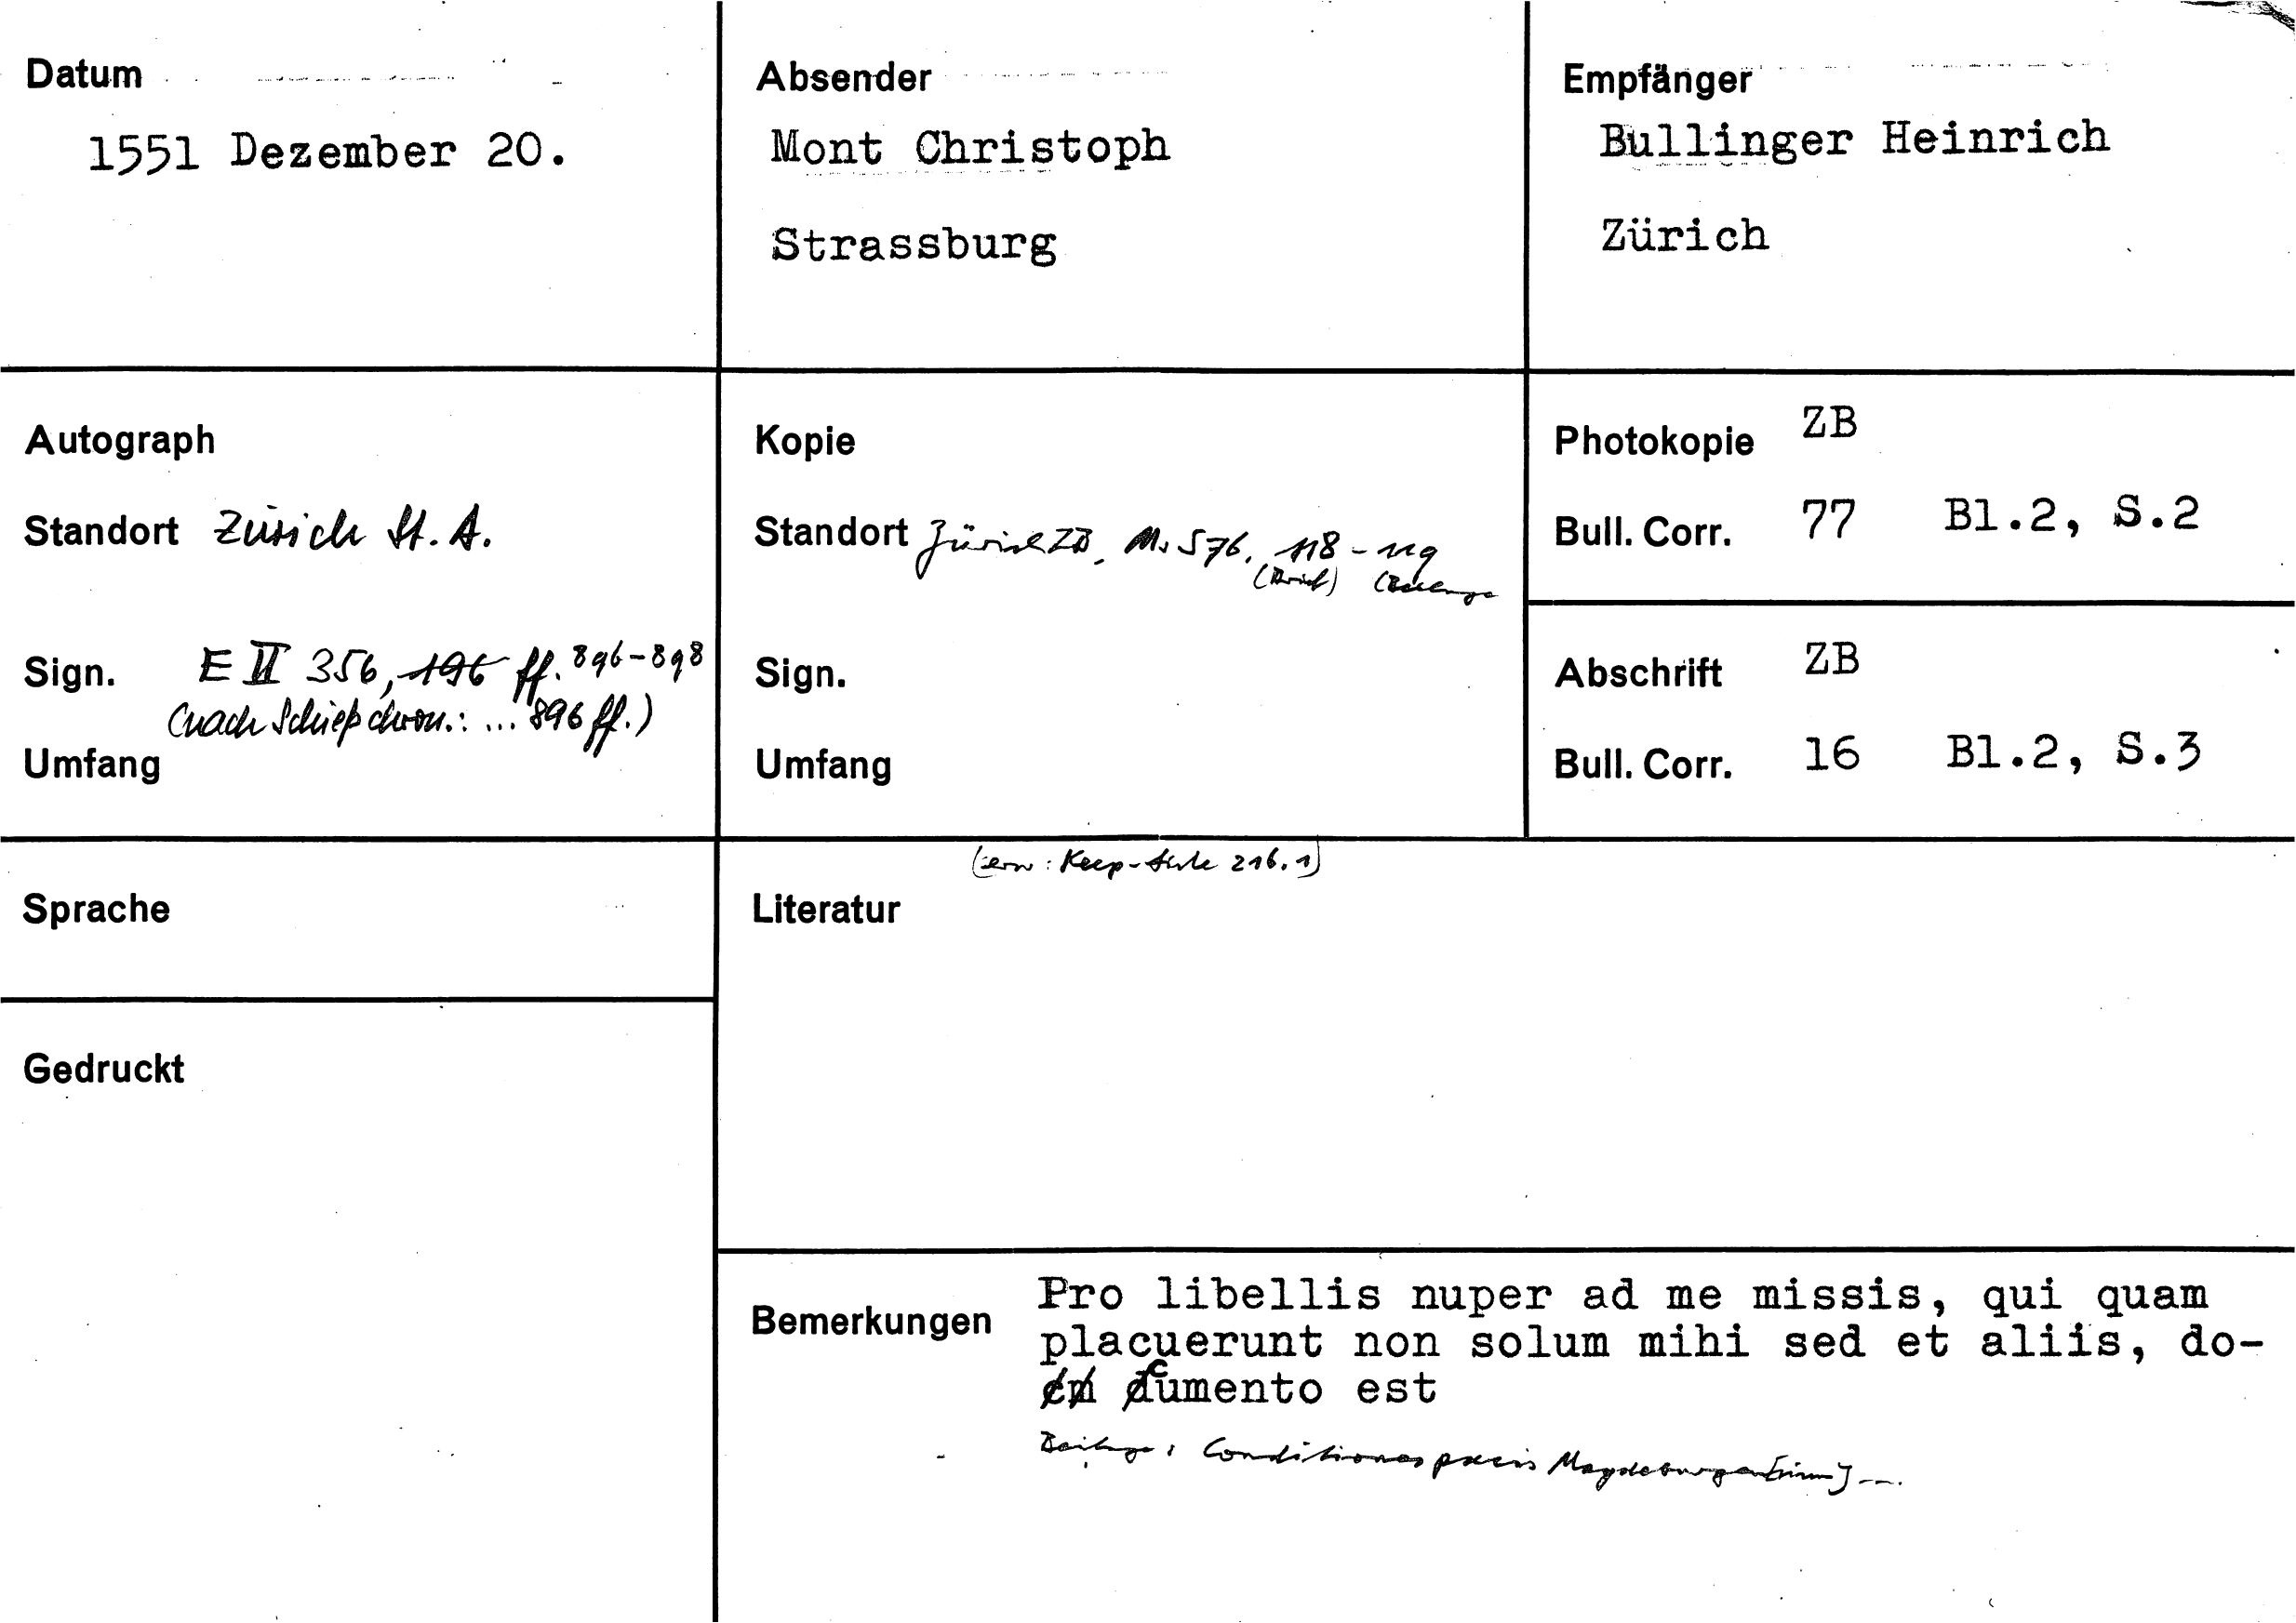 Datum
1551 Dezember 20.
Absender
Mont Christoph
Strassburg
Empfänger
Bullinger Heinrich
Zürich
Autograph
Standort Zürich St. A.
Sign. E II 356, 196 ff. 896-898
(nach Schieß chron.: ... 896 ff.)
Umfang
Kopie
Standort Zürich ZB, Ms S 76, 118-119
(Brief) (Beilage
Sign.
Umfang
Photokopie ZB
Bull. Corr. 77 Bl.2, S.2
Abschrift ZB
Bull. Corr. 16 Bl.2, S.3
Sprache
Gedruckt
(erw: Keep- 216.1)
Literatur
Bemerkungen
Pro libellis nuper ad me missis, qui quam
placuerunt non solum mihi sed et aliis, do-
cumento est
Beilage: Conditiones pacis Magdeburgen[sium] ...